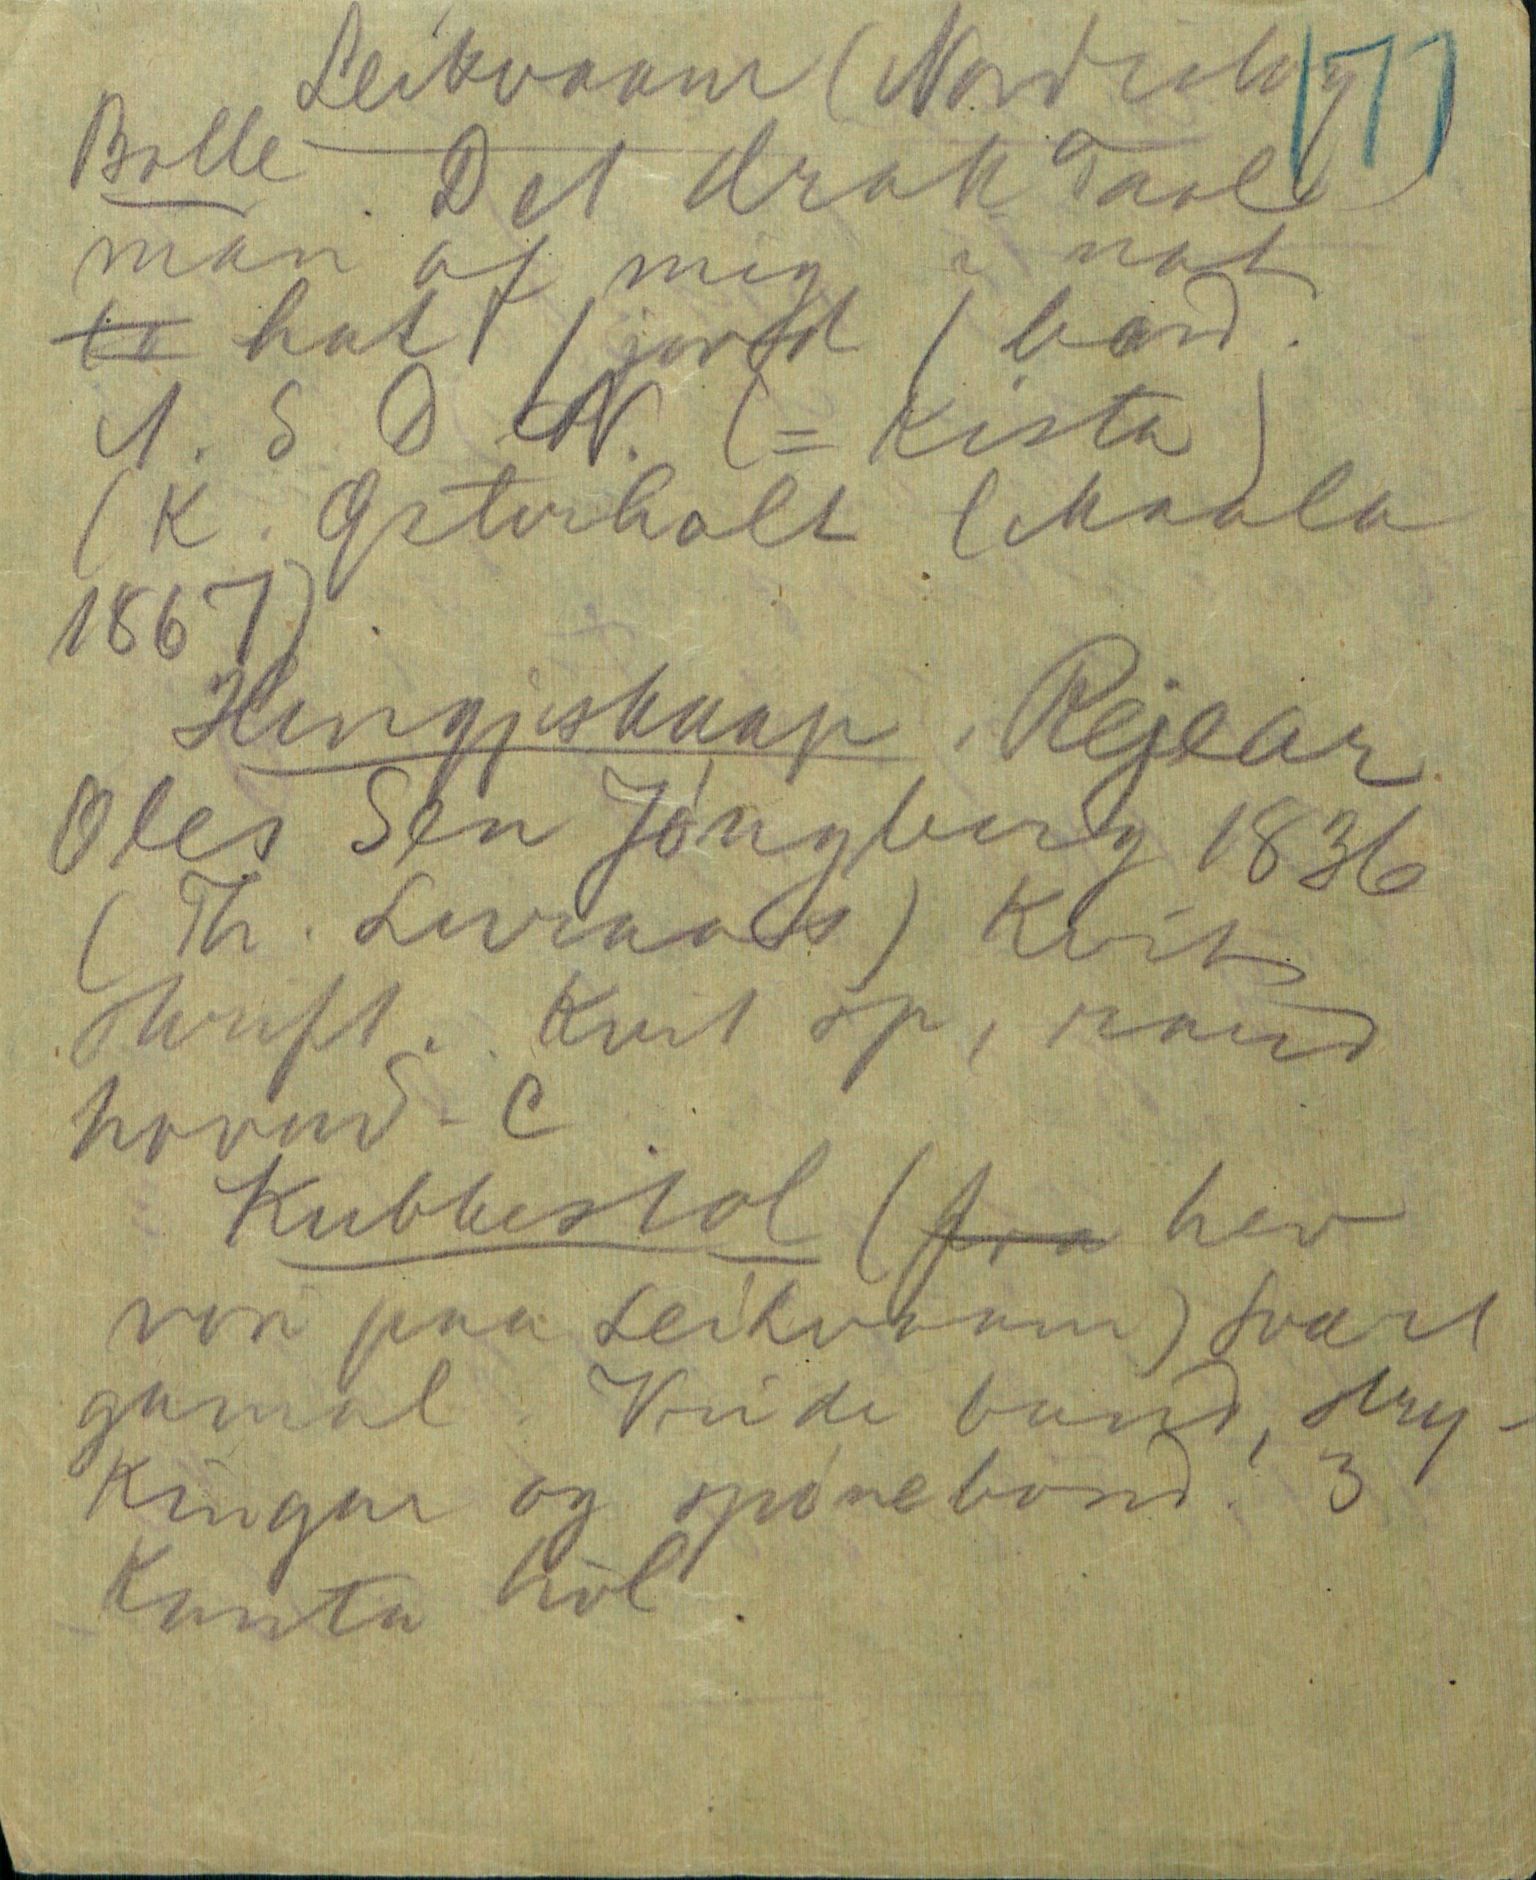 Leikvaam (Nordictog 171
Bolle. Det drak Taale
man af mig i nat
to hat fjort band.
A. S. D. N. (= Kista)
(K. Østerholt (Maala
1867)
Hengjeskaap, Rejear
Oles Sen Jóngberg 1836
(Th. Livraas) Kvit
skrift. Kvit op, raud
hovud-C
Kubbestol (fra hev
vori paa Leikvaam) svært
gamal. Vride band, stry-
Kingar og spónebond. 3
Kanta hòl.